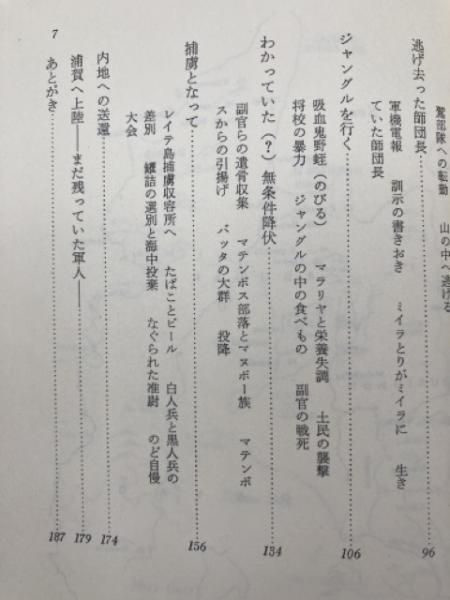 駕部隊への転動　山の中へ逃げる
逃げ去った師団長……96
軍機電報　訓示の書きおき　ミイラとりがミイラに　生き
ていた師団長
ジャングルを行く……106
吸血鬼野蛭(のびる)　マラリヤと栄養失調　土民の襲撃
将校の暴力　ジャングルの中の食べもの　副官の戦死
わかっていた(?)無条件降伏……134
副官らの遺骨収集　マテンボス部落とマヌボー族　マテンボ
スからの引揚げ　バッタの大群　投降
捕虜となって……156
レイテ島捕虜収容所へ　たばことビール　白人兵と黒人兵の
差別　罐詰の選別と海中投棄　なぐられた准尉　のど自慢
大会
内地への送還……174
浦賀へ上陸――まだ残っていた軍人――……179
あとがき……187
7